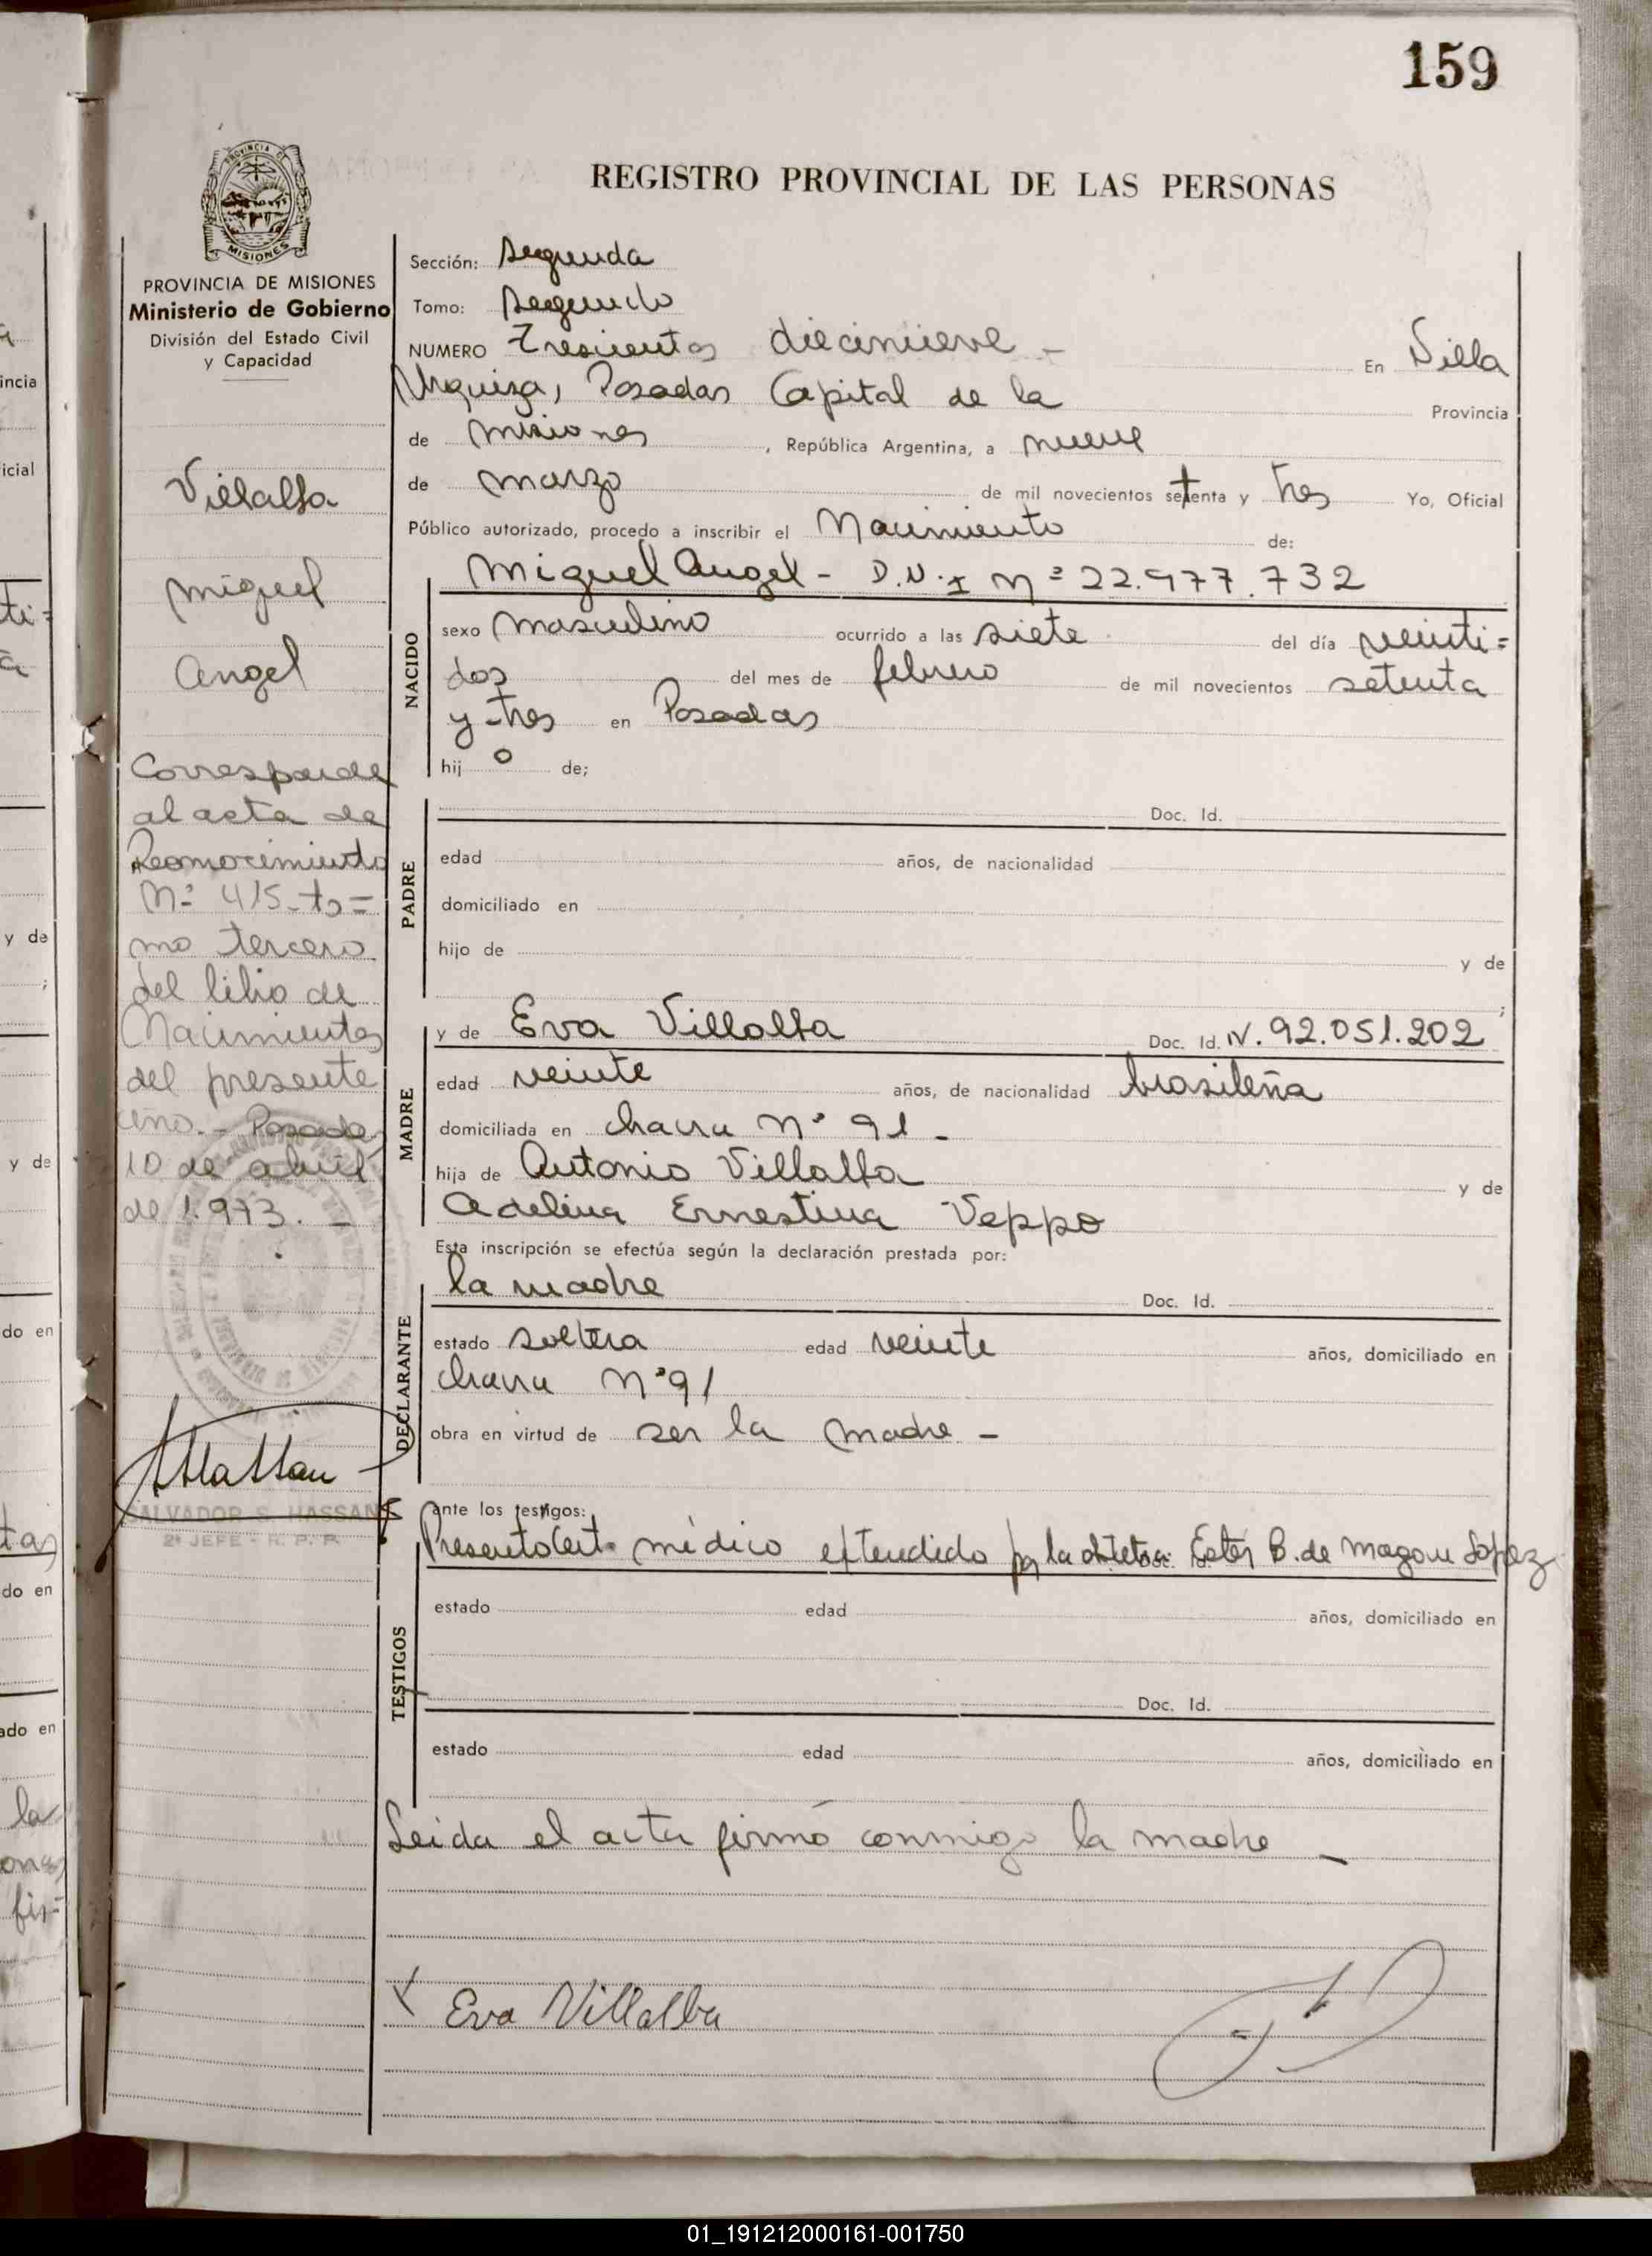 159
REGISTRO PROVINCIAL DE LAS PERSONAS
PROVINCIA DE MISIONES
Ministerio de Gobierno
División del Estado Civil
y Capacidad
Villalba
Miguel
Angel
Corresponde
al acta de
Reconocimiento
Nº 415-to=
mo tercero
del libro de
Nacimientos
del presente
año.- Posadas
10 de abril
de 1.973. -
SALVADOR S. HASSAN
2º JEFE - R. P. P.
Sección: Segunda
Tomo: Segundo
NUMERO Trescientos diecinueve - En Villa
Urquiza, Posadas Capital de la Provincia
de Misiones, República Argentina, a nueve
de marzo de mil novecientos setenta y tres Yo, Oficial
Público autorizado, procedo a inscribir el Nacimiento de:
NACIDO
Miguel Angel - D.N.I Nº 22.977.732
sexo masculino ocurrido a las siete del día veinti=
dos del mes de febrero de mil novecientos setenta
y tres en Posadas
hijo de;
PADRE
Doc. Id.
edad años, de nacionalidad
domiciliado en
hijo de y de
;
MADRE
y de Eva Villalba Doc. Id. N. 92.051.202
edad veinte años, de nacionalidad brasileña
domiciliada en chacra Nº 91 -
hija de Antonio Villalba y de
Adelina Ernestina Veppo
Esta inscripción se efectúa según la declaración prestada por:
DECLARANTE
la madre Doc. Id.
estado soltera edad veinte años, domiciliado en
chacra Nº 91
obra en virtud de ser la madre -
ante los testigos:
TESTIGOS
Presento Cert. médico extendido por la obstetra: Ester B. de López
estado edad años, domiciliado en
Doc. Id.
estado edad años, domiciliado en
Leida el acta firmó conmigo la madre -
Eva Villalba
01_191212000161-001750